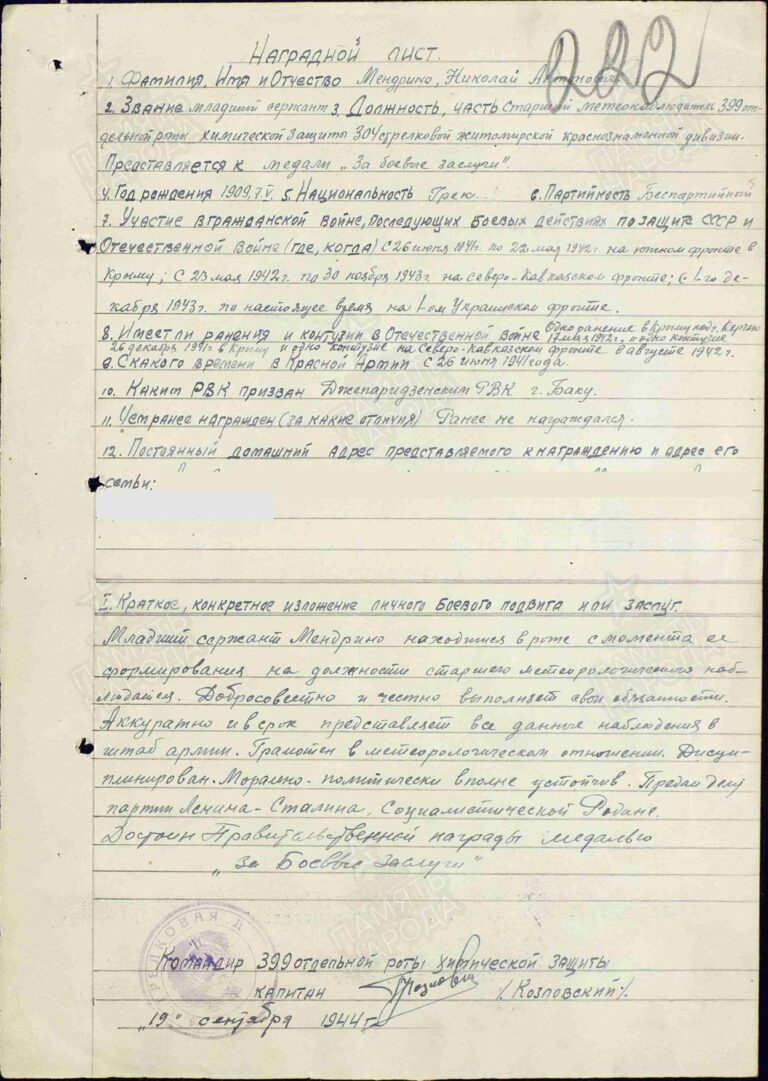 222
Наградной лист.
1. Фамилия, Имя и Отчество Мендрино, Николай Антонович
2. Звание младший сержант 3. Должность, часть Старший метеонаблюдатель 399 от-
дельной роты химической защиты 304 стрелковой житомирской краснознаменной дивизии.
Представляется к медали „За боевые заслуги".
4. Год рождения 1909, 7.V. 5. Национальность Грек. 6. Партийность Беспартийный
7. Участие в гражданской войне, последующих боевых действиях по защите СССР и
Отечественной войне (где, когда) С 26 июня 1941г. по 22 мая 1942г. на южном фронте в
Крыму; С 23 мая 1942г. по 30 ноября 1943г. на северо-Кавказском фронте; С 1-го де-
кабря 1943г. по настоящее время на 1-ом Украинском фронте.
8. Имеет ли ранения и контузии в Отечественной войне Одно ранение в Крыму под г. Керчью
17 мая 1942г. и одно контузие
26 декабря 1941г. в Крыму и одно контузие на Северо-Кавказском фронте в августе 1942г.
9. С какого времени в Красной Армии С 26 июня 1941 года.
10. Каким РВК призван Джепаридзенским РВК г. Баку.
11. Чем ранее награжден (за какие отличия) Ранее не награждался.
12. Постоянный домашний адрес представляемого к награждению и адрес его
семьи:
I. Краткое, конкретное изложение личного боевого подвига или заслуг.
Младший сержант Мендрино находится в роте с момента ее
формирования на должности старшего метеорологического наб-
людателя. Добросовестно и честно выполняет свои обязанности.
Аккуратно и в срок представляет все данные наблюдения в
штаб армии. Грамотен в метеорологическом отношении. Дисци-
плинирован. Морально-политически вполне устойчив. Предан делу
партии Ленина-Сталина, Социалистической Родине.
Достоин Правительственной награды медалью
„За Боевые Заслуги"
Командир 399 отдельной роты химической защиты
капитан /Козловский/.
„19" сентября 1944г.
СТРЕЛКОВАЯ Д
ПАМЯТЬ НАРОДА